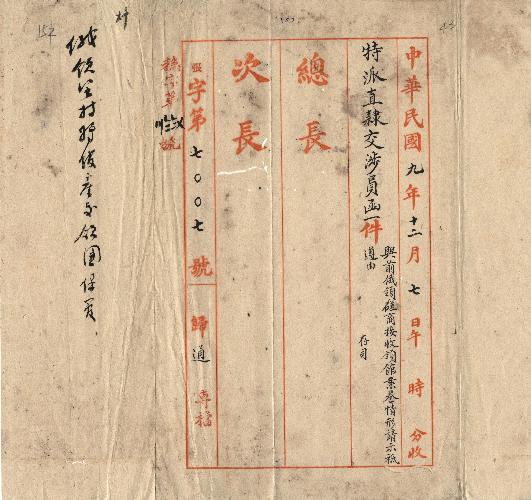 中華民國九年十二月七日午 時 分收
特派直隸交涉員函一件
與前俄領磋商接收領館案卷情形請示祗
遵由
存司
總長
次長
張字第七〇〇七號
歸 通 專檔
號
俄領堅持將俄產交領團保管
152